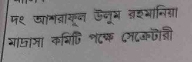 পং আশরাফুল উলুম রহমানিয়া
মাদ্রাসা কমিটি পক্ষে সেক্রেটারী